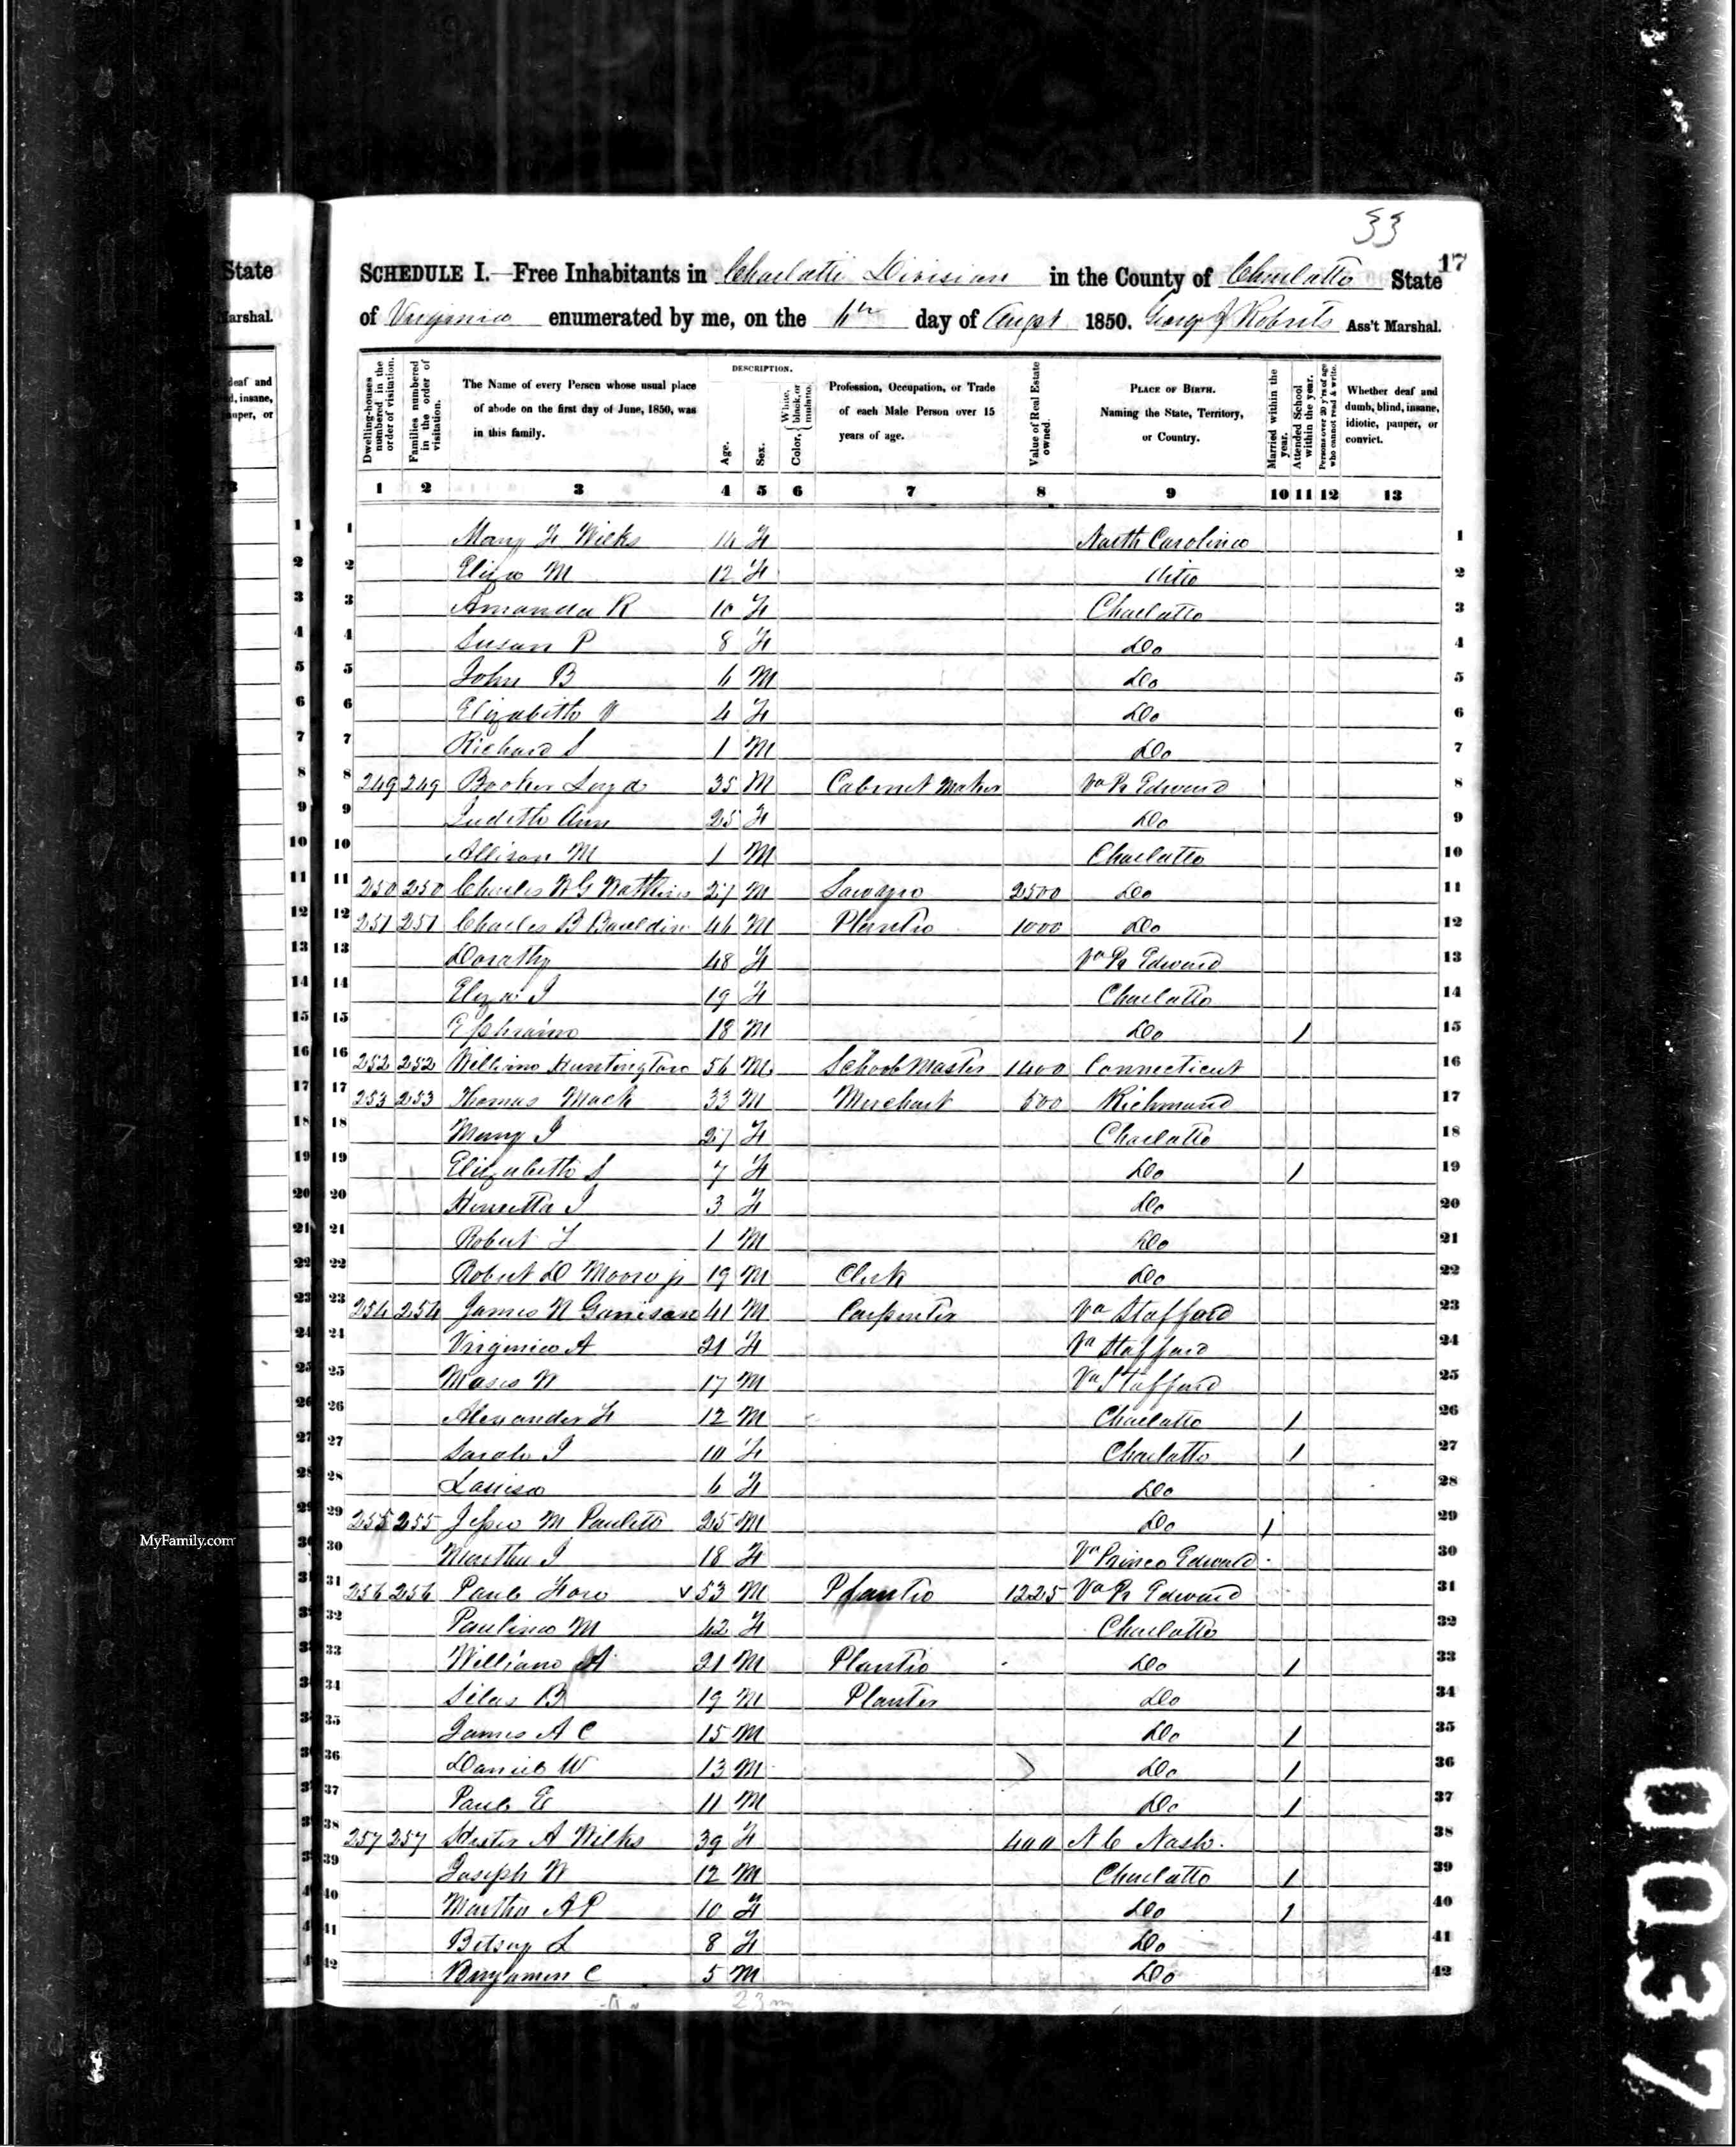 33
17
SCHEDULE I.—Free Inhabitants in Charlotte Division in the County of Charlotte State
of Virginia enumerated by me, on the 6th day of Augst 1850. George J Roberts Ass't Marshal.
Dwelling-houses numbered in the order of visitation.
Families numbered in the order of visitation.
The Name of every Person whose usual place of abode on the first day of June, 1850, was in this family.
DESCRIPTION.
Age.
Sex.
Color, { White, black, or mulatto.
Profession, Occupation, or Trade of each Male Person over 15 years of age.
Value of Real Estate owned.
PLACE OF BIRTH. Naming the State, Territory, or Country.
Married within the year.
Attended School within the year.
Persons over 20 y'rs of age who cannot read & write.
Whether deaf and dumb, blind, insane, idiotic, pauper, or convict.
1 2 3 4 5 6 7 8 9 10 11 12 13
1 Mary F Wilks 14 F North Carolina 1
2 Eliza M 12 F ditto 2
3 Amanda R 10 F Charlotte 3
4 Susan P 8 F Do 4
5 John B 6 M Do 5
6 Elizabeth V 4 F Do 6
7 Richard S 1 M Do 7
8 249 249 Booker Loyd 35 M Cabinet Maker Va Pr Edward 8
9 Judith Ann 25 F Do 9
10 Allison M 1 M Charlotte 10
11 250 250 Charles W G Watkins 27 M Lawyer 2500 Do 11
12 251 251 Charles B Bauldin 46 M Planter 1000 Do 12
13 Dorathy 48 F Va Pr Edward 13
14 Eliza J 19 F Charlotte 14
15 Ephraim 18 M Do 1 15
16 252 252 William Huntington 56 M School Master 1400 Connecticut 16
17 253 253 Thomas Mack 33 M Merchant 500 Richmond 17
18 Mary J 27 F Charlotte 18
19 Elizabeth S 7 F Do 1 19
20 Henrietta J 3 F Do 20
21 Robert T 1 M Do 21
22 Robert D Moore jr 19 M Clerk Do 22
23 254 254 James N Garrison 41 M Carpenter Va Stafford 23
24 Virginia A 21 F Va Stafford 24
25 Moses W 17 M Va Stafford 25
26 Alexander F 12 M Charlotte 1 26
27 Sarah J 10 F Charlotte 1 27
28 Louisa 6 F Do 28
29 255 255 Jesse M Paulett 25 M Do 1 29
30 Martha J 18 F Va Prince Edward 30
31 256 256 Paul Fore 53 M Planter 1225 Va Pr Edward 31
32 Paulina M 42 F Charlotte 32
33 William A 21 M Planter Do 1 33
34 Silas B 19 M Planter Do 34
35 James A C 15 M Do 1 35
36 Daniel W 13 M Do 1 36
37 Paul E 11 M Do 1 37
38 257 257 Hester A Wilks 39 F 400 N C Nash. 38
39 Joseph W 12 M Charlotte 1 39
40 Martha A P 10 F Do 1 40
41 Betsey L 8 F Do 41
42 Benjamin C 5 M Do 42
23 m
MyFamily.com
0037